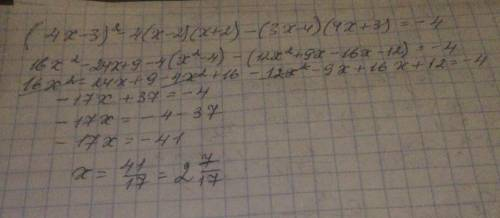 (4x-3)² - 4(x-2)(x+2) - (3x-4)(4x+3) = -4
16x² - 24x + 9 - 4(x² - 4) - (12x² + 9x - 16x - 12) = -4
16x² - 24x + 9 - 4x² + 16 - 12x² - 9x + 16x + 12 = -4
-17x + 37 = -4
-17x = -4 - 37
-17x = -41
x = 41/17 = 2 7/17